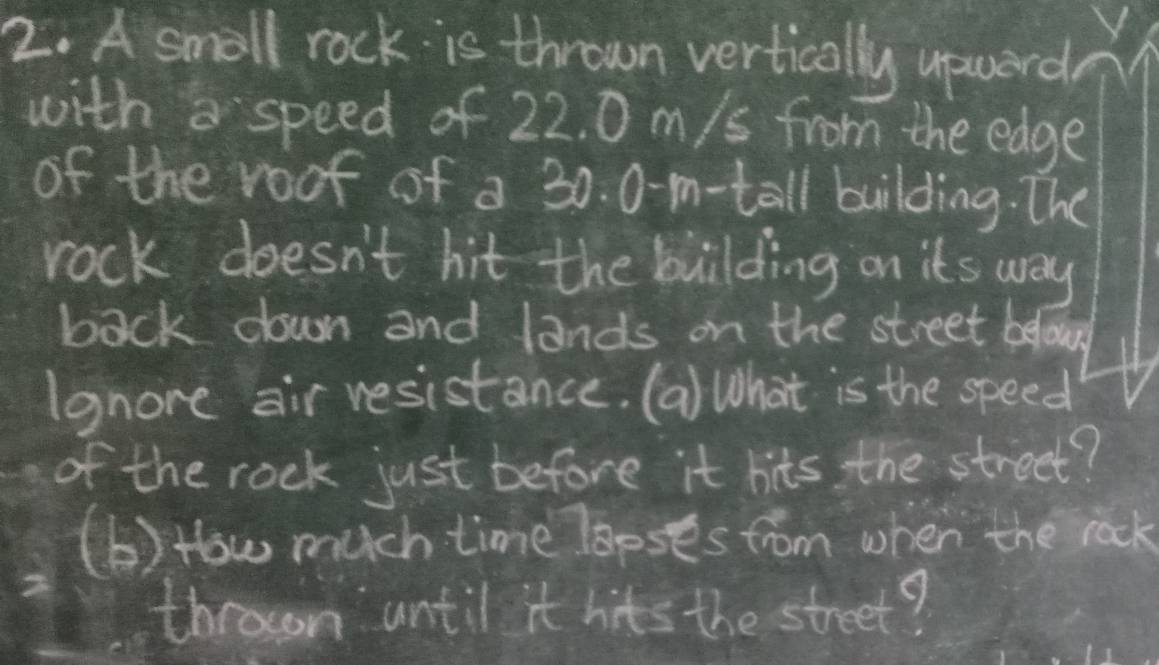 2. A small rock is thrown vertically upward
with a speed of 22.0 m/s from the edge
of the roof of a 30.0-m-tall building. The
rock doesn't hit the building on its way
back down and lands on the street below.
Ignore air resistance. (a) What is the speed
of the rock just before it hits the street?
(b) How much time lapses from when the rock
thrown until it hits the street?